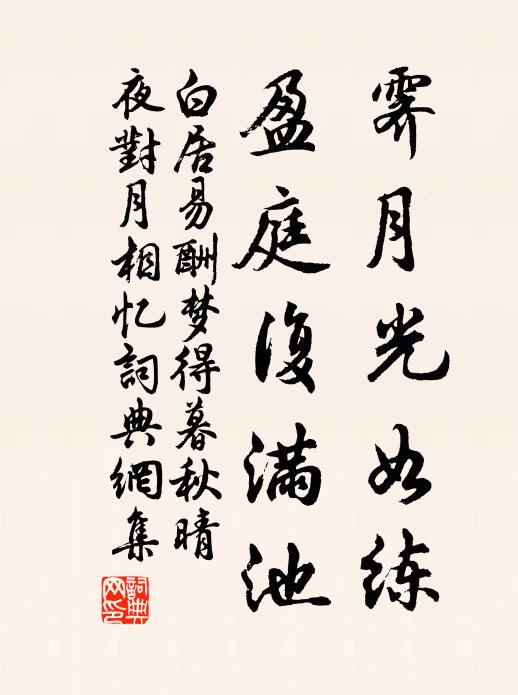 霁月光如练
盈庭復满池
白居易酬梦得暮秋晴
夜對月相忆詞典網集
詞典網印